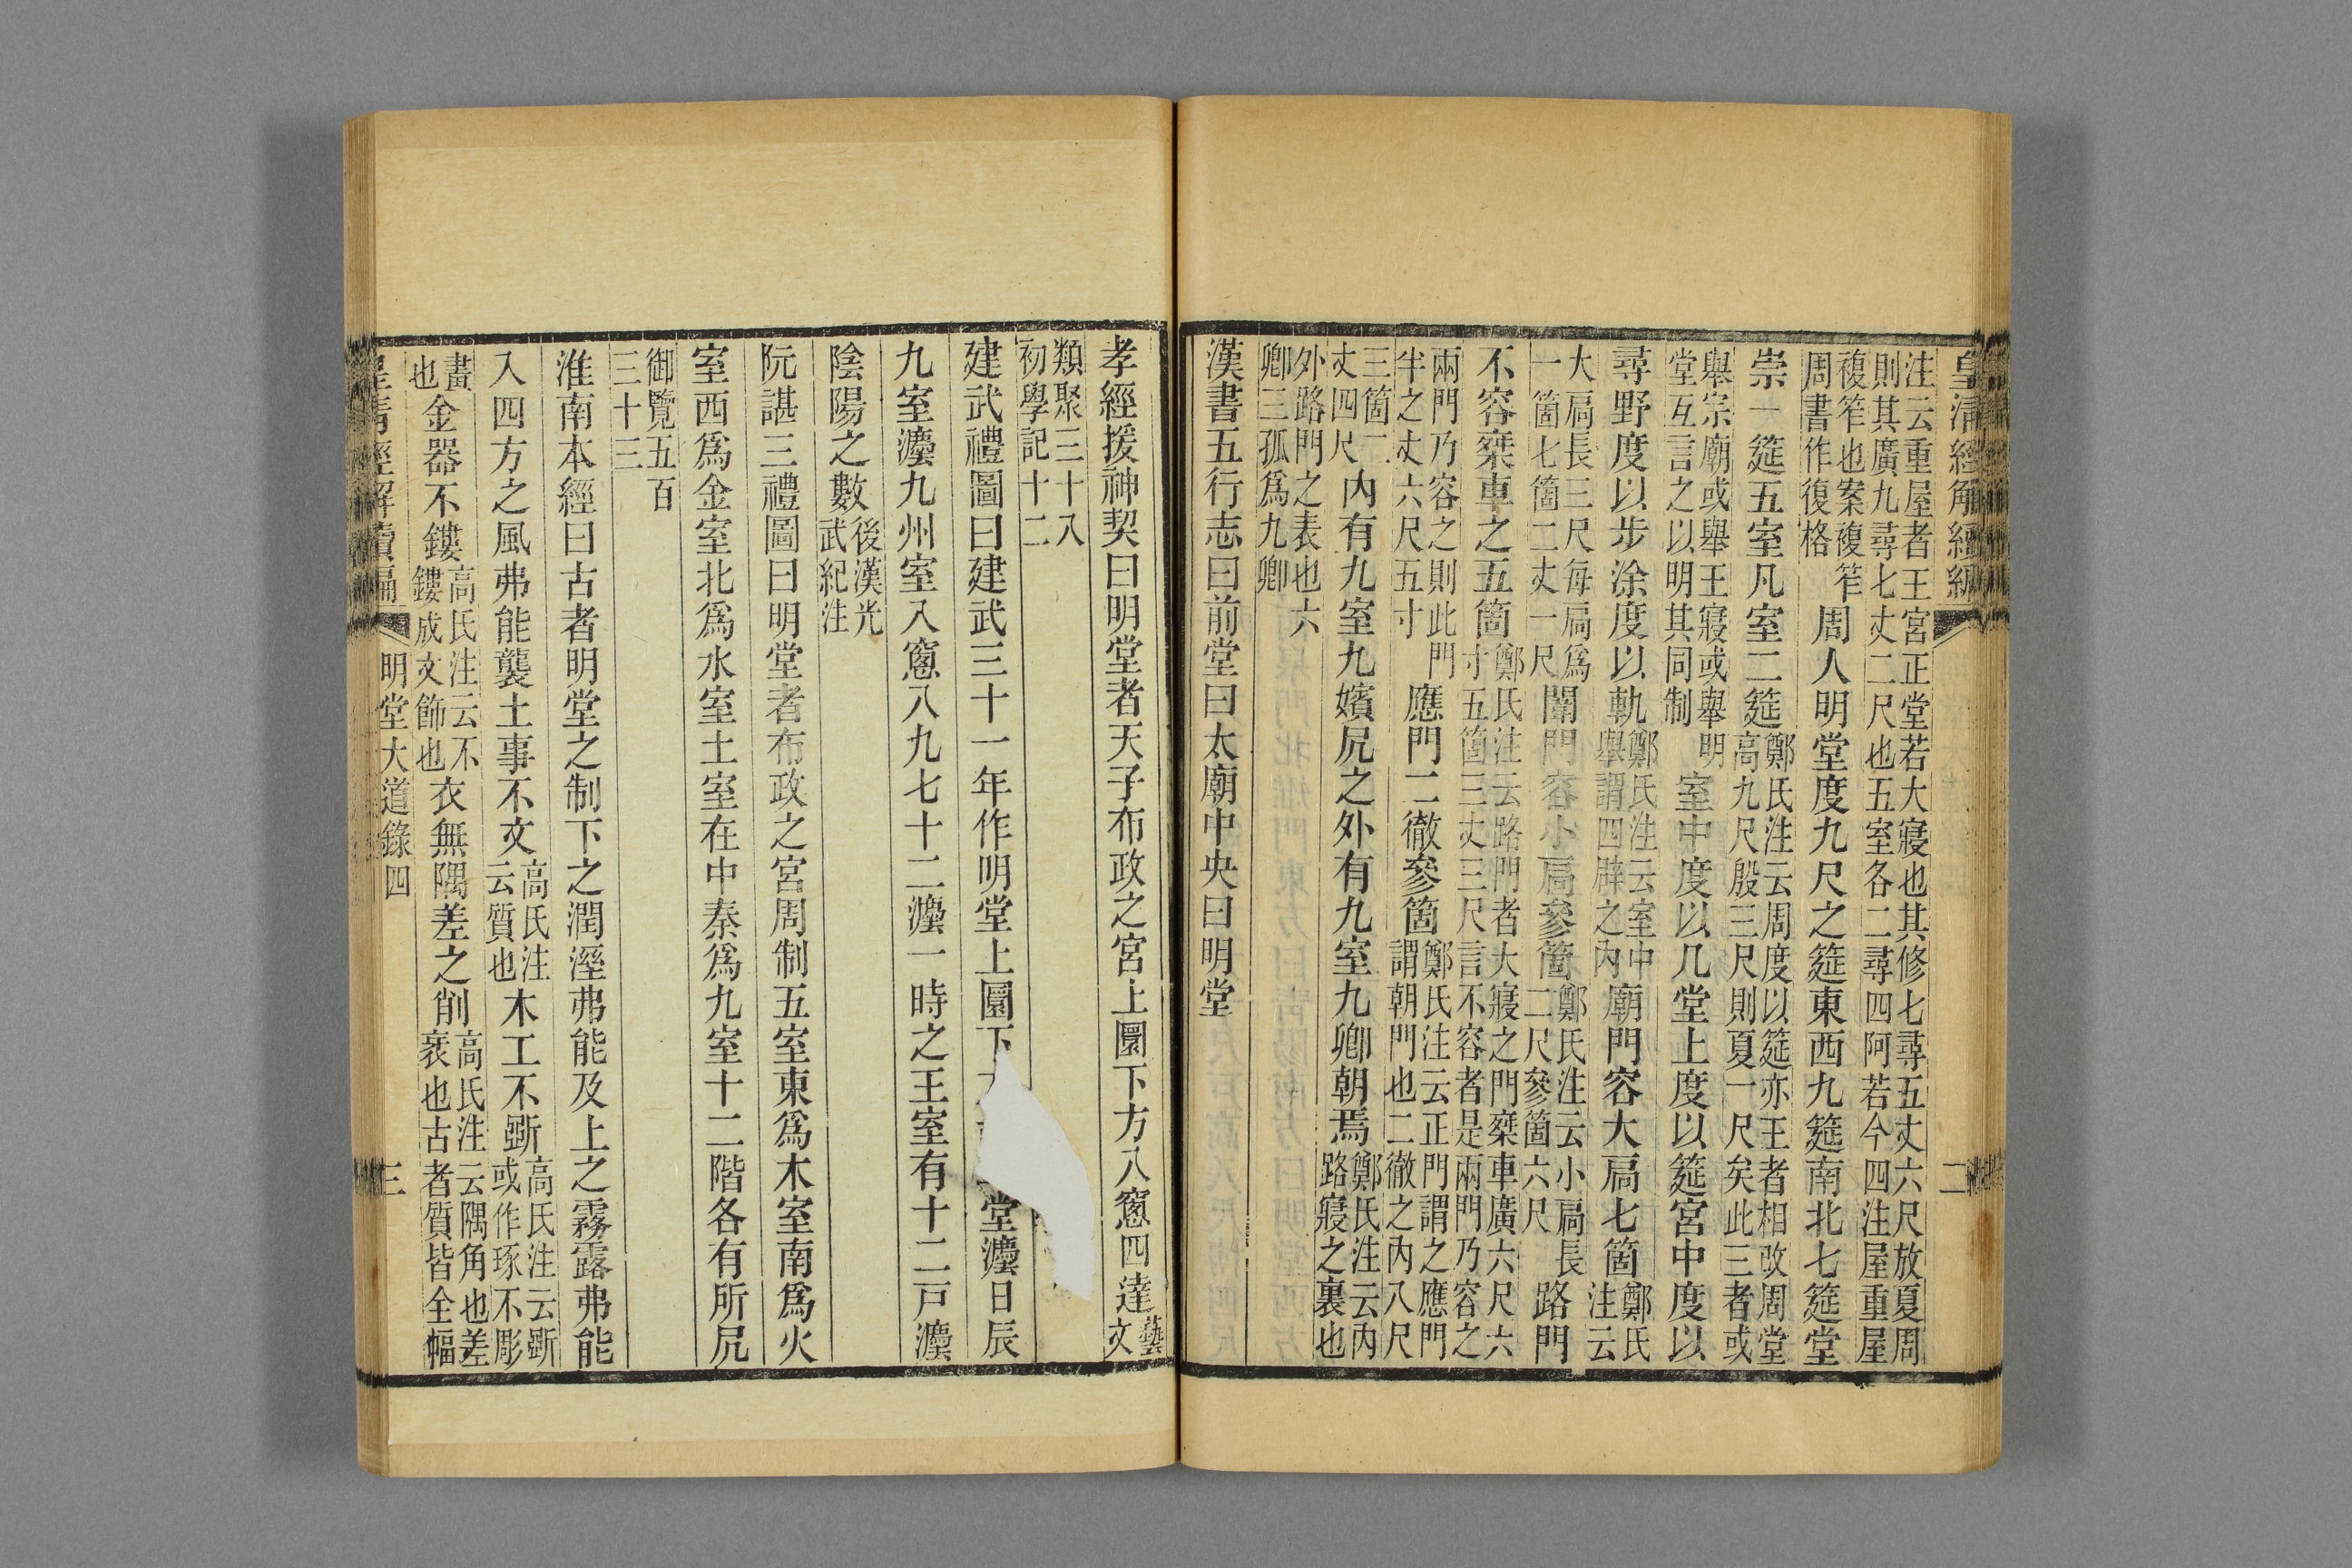 皇清經解續編
二
注云重屋者王宮正堂若大寢也其修七尋五丈六尺放夏周
則其廣九尋七丈二尺也五室各二尋四阿若今四注屋重屋
複笮也案複笮
周書作復格
周人明堂度九尺之筵東西九筵南北七筵堂
崇一筵五室凡室二筵
鄭氏注云周度以筵亦王者相改周堂
高九尺殷三尺則夏一尺矣此三者或
舉宗廟或舉王寢或舉明
堂互言之以明其同制
室中度以几堂上度以筵宮中度以
尋野度以步涂度以軌
鄭氏注云室中
舉謂四壁之內
廟門容大扃七箇
鄭氏
注云
大扃長三尺每扃爲
一箇七箇二丈一尺
闈門容小扃參箇
鄭氏注云小扃長
二尺參箇六尺
路門
不容椉車之五箇
鄭氏注云路門者大寢之門椉車廣六尺六
寸五箇三丈三尺言不容者是兩門乃容之
兩門乃容之則此門
半之丈六尺五寸
應門二徹參箇
鄭氏注云正門謂之應門
謂朝門也二徹之內八尺
三箇二
丈四尺
內有九室九嬪凥之外有九室九卿朝焉
鄭氏注云內
路寢之裏也
外路門之表也六
卿三孤爲九卿
漢書五行志曰前堂曰太廟中央曰明堂
孝經援神契曰明堂者天子布政之宮上圜下方八窻四達
藝
文
類聚三十八
初學記十二
建武禮圖曰建武三十一年作明堂上圜下 堂灋日辰
九室灋九州室八窻八九七十二灋一時之王室有十二戸灋
陰陽之數
後漢光
武紀注
阮諶三禮圖曰明堂者布政之宮周制五室東爲木室南爲火
室西爲金室北爲水室土室在中秦爲九室十二階各有所凥
御覽五百
三十三
淮南本經曰古者明堂之制下之潤溼弗能及上之霧露弗能
入四方之風弗能襲土事不文
高氏注
云質也
木工不斲
高氏注云斲
或作琢不彫
畫
也
金器不鏤
高氏注云不
鏤成文飾也
衣無隅差之削
高氏注云隅角也差
衺也古者質皆全幅
皇清經解續編
明堂大道錄四
三